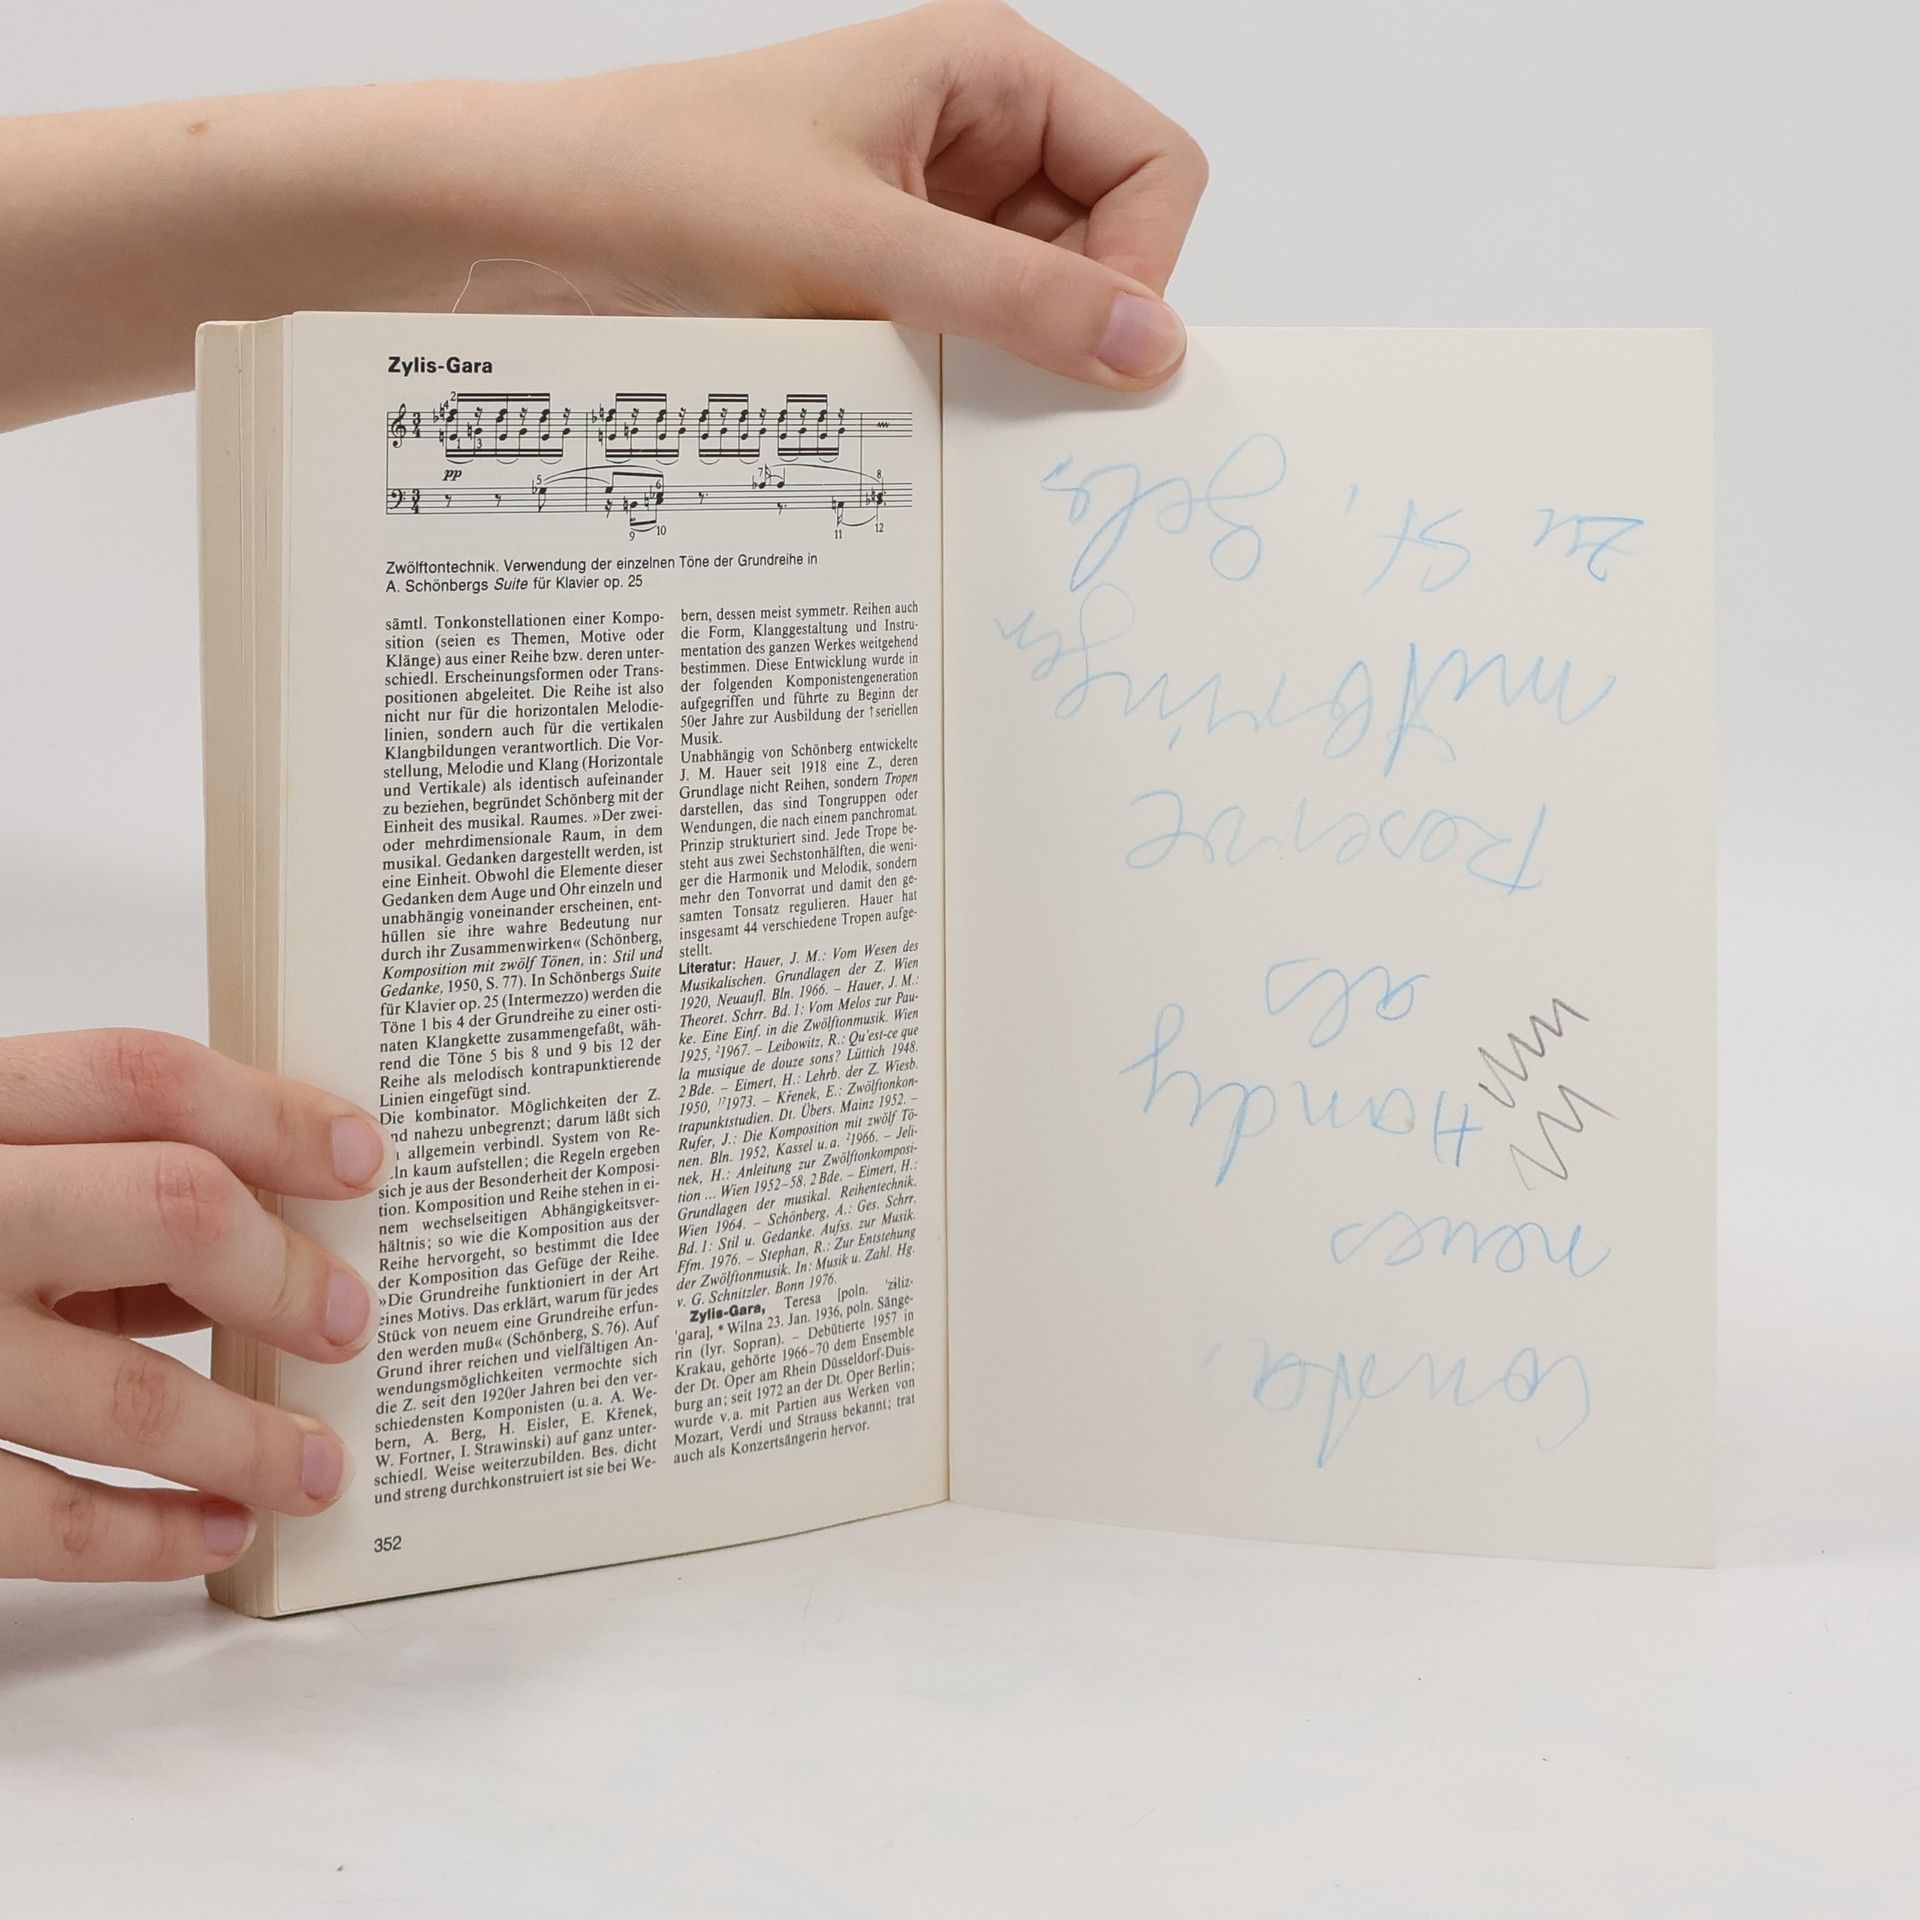 Zylis-Gara
pp
Zwölftontechnik. Verwendung der einzelnen Töne der Grundreihe in
A. Schönbergs Suite für Klavier op. 25
sämtl. Tonkonstellationen einer Kompo-
sition (seien es Themen, Motive oder
Klänge) aus einer Reihe bzw. deren unter-
schiedl. Erscheinungsformen oder Trans-
positionen abgeleitet. Die Reihe ist also
nicht nur für die horizontalen Melodie-
linien, sondern auch für die vertikalen
Klangbildungen verantwortlich. Die Vor-
stellung, Melodie und Klang (Horizontale
und Vertikale) als identisch aufeinander
zu beziehen, begründet Schönberg mit der
Einheit des musikal. Raumes. »Der zwei-
oder mehrdimensionale Raum, in dem
musikal. Gedanken dargestellt werden, ist
eine Einheit. Obwohl die Elemente dieser
Gedanken dem Auge und Ohr einzeln und
unabhängig voneinander erscheinen, ent-
hüllen sie ihre wahre Bedeutung nur
durch ihr Zusammenwirken« (Schönberg,
Komposition mit zwölf Tönen, in: Stil und
Gedanke, 1950, S. 77). In Schönbergs Suite
für Klavier op. 25 (Intermezzo) werden die
Töne 1 bis 4 der Grundreihe zu einer osti-
naten Klangkette zusammengefaßt, wäh-
rend die Töne 5 bis 8 und 9 bis 12 der
Reihe als melodisch kontrapunktierende
Linien eingefügt sind.
Die kombinator. Möglichkeiten der Z.
nd nahezu unbegrenzt; darum läßt sich
allgemein verbindl. System von Re-
ln kaum aufstellen; die Regeln ergeben
sich je aus der Besonderheit der Komposi-
tion. Komposition und Reihe stehen in ei-
nem wechselseitigen Abhängigkeitsver-
hältnis; so wie die Komposition aus der
Reihe hervorgeht, so bestimmt die Idee
der Komposition das Gefüge der Reihe.
»Die Grundreihe funktioniert in der Art
eines Motivs. Das erklärt, warum für jedes
Stück von neuem eine Grundreihe erfun-
den werden muß« (Schönberg, S. 76). Auf
Grund ihrer reichen und vielfältigen An-
wendungsmöglichkeiten vermochte sich
die Z. seit den 1920er Jahren bei den ver-
schiedensten Komponisten (u. a. A. We-
bern, A. Berg, H. Eisler, E. Křenek,
W. Fortner, I. Strawinski) auf ganz unter-
schiedl. Weise weiterzubilden. Bes. dicht
und streng durchkonstruiert ist sie bei We-
352
bern, dessen meist symmetr. Reihen auch
die Form, Klanggestaltung und Instru-
mentation des ganzen Werkes weitgehend
bestimmen. Diese Entwicklung wurde in
der folgenden Komponistengeneration
aufgegriffen und führte zu Beginn der
50er Jahre zur Ausbildung der ↑seriellen
Musik.
Unabhängig von Schönberg entwickelte
J. M. Hauer seit 1918 eine Z., deren
Grundlage nicht Reihen, sondern Tropen
darstellen, das sind Tongruppen oder
Wendungen, die nach einem panchromat.
Prinzip strukturiert sind. Jede Trope be-
steht aus zwei Sechstonhälften, die weni-
ger die Harmonik und Melodik, sondern
mehr den Tonvorrat und damit den ge-
samten Tonsatz regulieren. Hauer hat
insgesamt 44 verschiedene Tropen aufge-
stellt.
Literatur: Hauer, J. M.: Vom Wesen des
Musikalischen. Grundlagen der Z. Wien
1920, Neuaufl. Bln. 1966. – Hauer, J. M.:
Theoret. Schrr. Bd. 1: Vom Melos zur Pau-
ke. Eine Einf. in die Zwölftonmusik. Wien
1925, ²1967. – Leibowitz, R.: Qu'est-ce que
la musique de douze sons? Lüttich 1948.
2 Bde. – Eimert, H.: Lehrb. der Z. Wiesb.
1950, ¹⁷1973. – Křenek, E.: Zwölftonkon-
trapunktstudien. Dt. Übers. Mainz 1952. –
Rufer, J.: Die Komposition mit zwölf Tö-
nen. Bln. 1952, Kassel u. a. ²1966. – Jeli-
nek, H.: Anleitung zur Zwölftonkomposi-
tion ... Wien 1952–58. 2 Bde. – Eimert, H.:
Grundlagen der musikal. Reihentechnik.
Wien 1964. – Schönberg, A.: Ges. Schrr.
Bd. 1: Stil u. Gedanke. Aufss. zur Musik.
Ffm. 1976. – Stephan, R.: Zur Entstehung
der Zwölftonmusik. In: Musik u. Zahl. Hg.
v. G. Schnitzler. Bonn 1976.
Zylis-Gara, Teresa [poln. 'ziliz-
'gara], * Wilna 23. Jan. 1936, poln. Sänge-
rin (lyr. Sopran). – Debütierte 1957 in
Krakau, gehörte 1966–70 dem Ensemble
der Dt. Oper am Rhein Düsseldorf-Duis-
burg an; seit 1972 an der Dt. Oper Berlin;
wurde v. a. mit Partien aus Werken von
Mozart, Verdi und Strauss bekannt; trat
auch als Konzertsängerin hervor.
neues
Handy
als
Reserve
mitbringen
zu St,